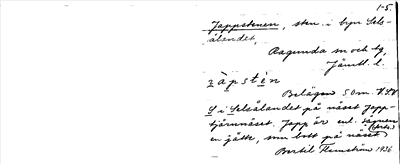 1-5.
Jappstenen, sten i byn Sels-
ålandet,
Ragunda sn och tg,
Jämtl. l.
zàpsten
Belägen 50 m. V.S.V
i Selsålandet på näset Japp-
tjärnnäset. Japp är enl. sägnen
en jätte, som bott på näset
Bertil Flemström 1936